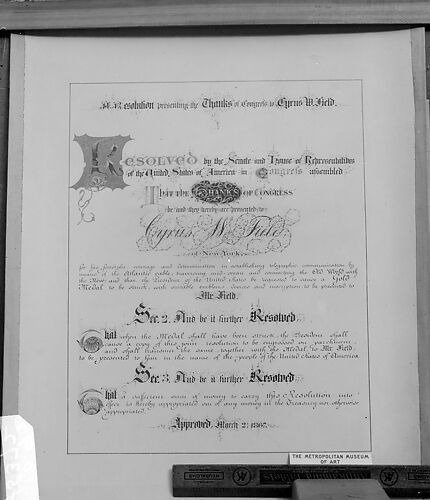 A Resolution presenting the Thanks of Congress to Cyrus W. Field.
Resolved by the Senate and House of Representatives
of the United States of America in Congress assembled
That the THANKS of Congress
be and they hereby are presented to
Cyrus W. Field
of New York
for his foresight, courage and determination in establishing telegraphic communication by
means of the Atlantic cable traversing mid ocean and connecting the Old World with
the New; and that the President of the United States be requested to cause a Gold
Medal to be struck with suitable emblems, devices and inscription to be presented to
Mr. Field.
Sec. 2. And be it further Resolved.
That when the Medal shall have been struck the President shall
cause a copy of this joint resolution to be engrossed on parchment
and shall transmit the same together with the Medal to Mr. Field
to be presented to him in the name of the people of the United States of America
Sec. 3. And be it further Resolved.
That a sufficient sum of money to carry this Resolution into
effect is hereby appropriated out of any money in the Treasury not otherwise
appropriated.
Approved, March 2, 1867.
THE METROPOLITAN MUSEUM
OF ART